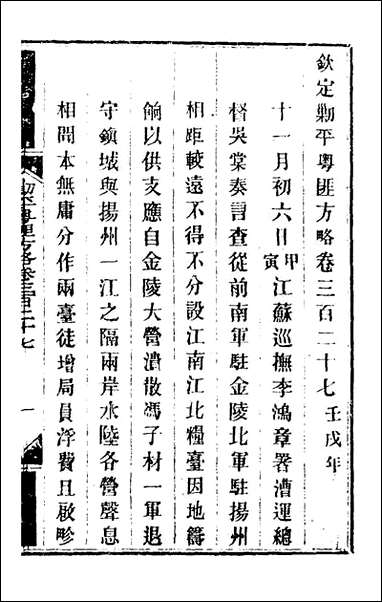 欽定剿平粵匪方略卷三百二十七 壬戌年
十一月初六日甲寅江蘇巡撫李鴻章署漕運總
督吳棠奏言查從前南軍駐金陵北軍駐揚州
相距較遠不得不分設江南江北糧臺因地籌
餉以供支應自金陵大營潰散馮子材一軍退
守鎮城與揚州一江之隔兩岸水陸各營聲息
相聞本無庸分作兩臺徒增局員浮費且啟畛